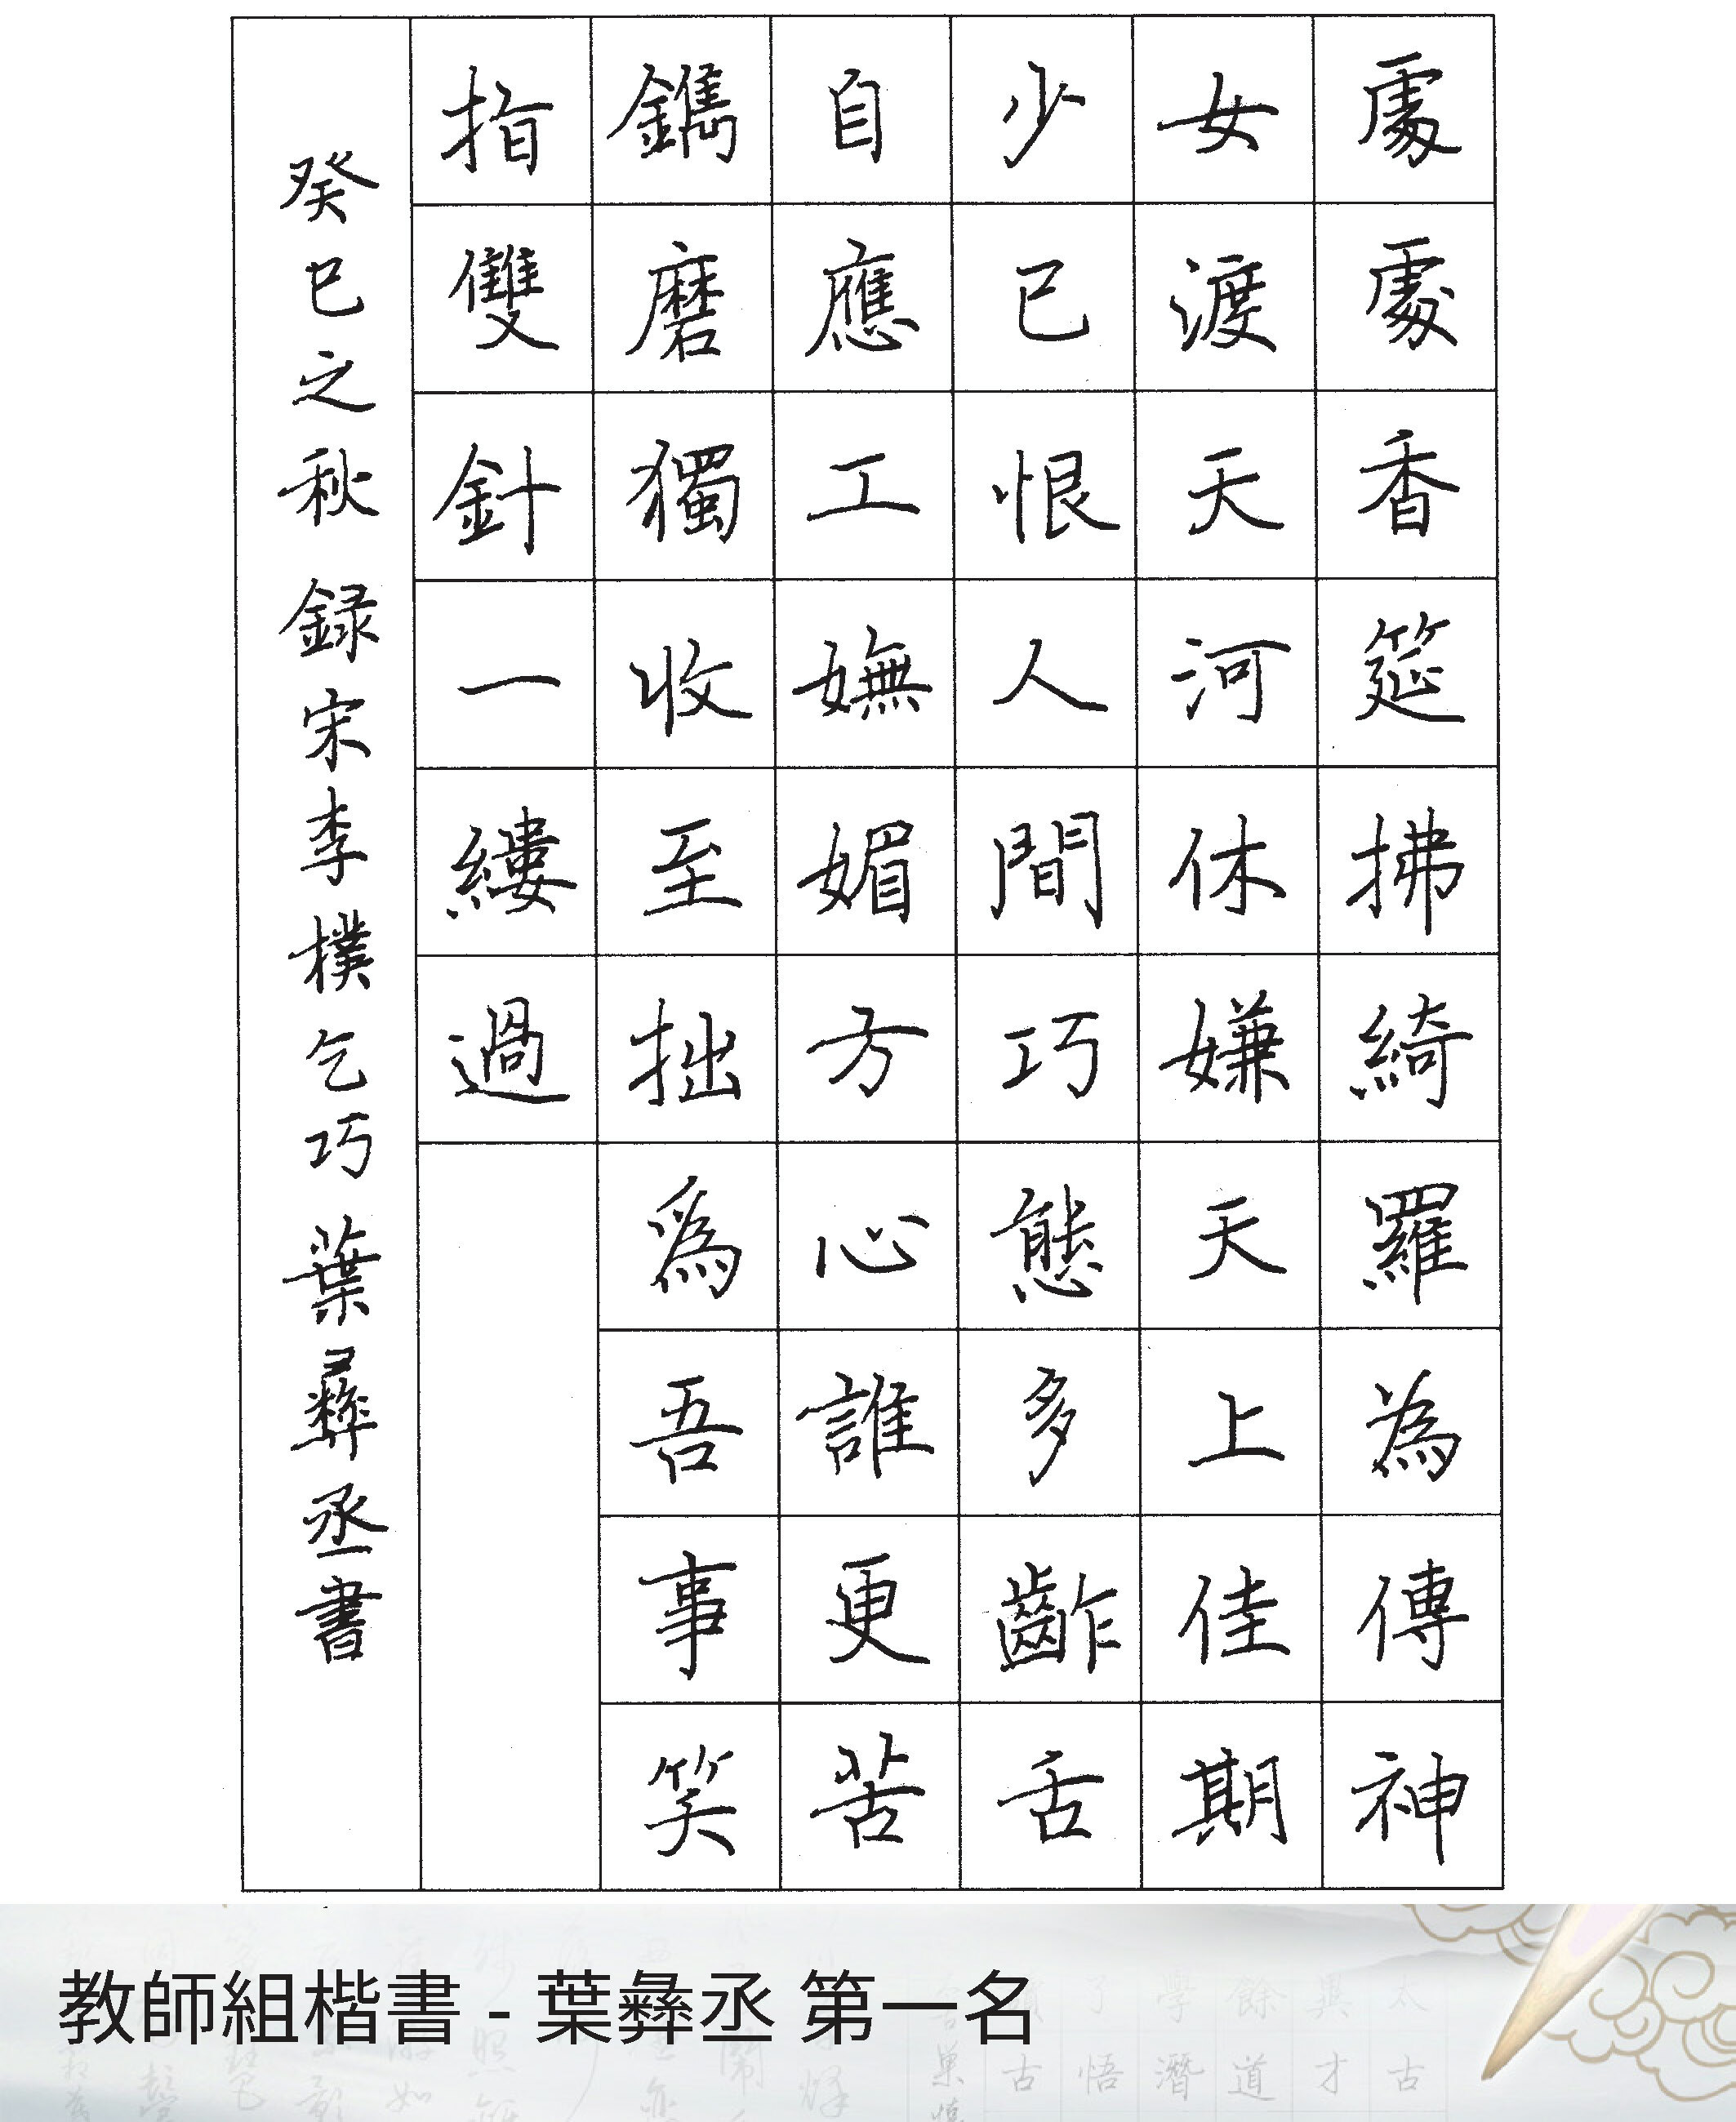 處處香筵拂綺羅為傳神
女渡天河休嫌天上佳期
少已恨人間巧態多齰舌
自應工嫵媚方心誰更苦
鐫磨獨收至拙爲吾事笑
指雙針一縷過
癸巳之秋 録宋李樸乞巧 葉彝丞書
教師組楷書 - 葉彝丞 第一名